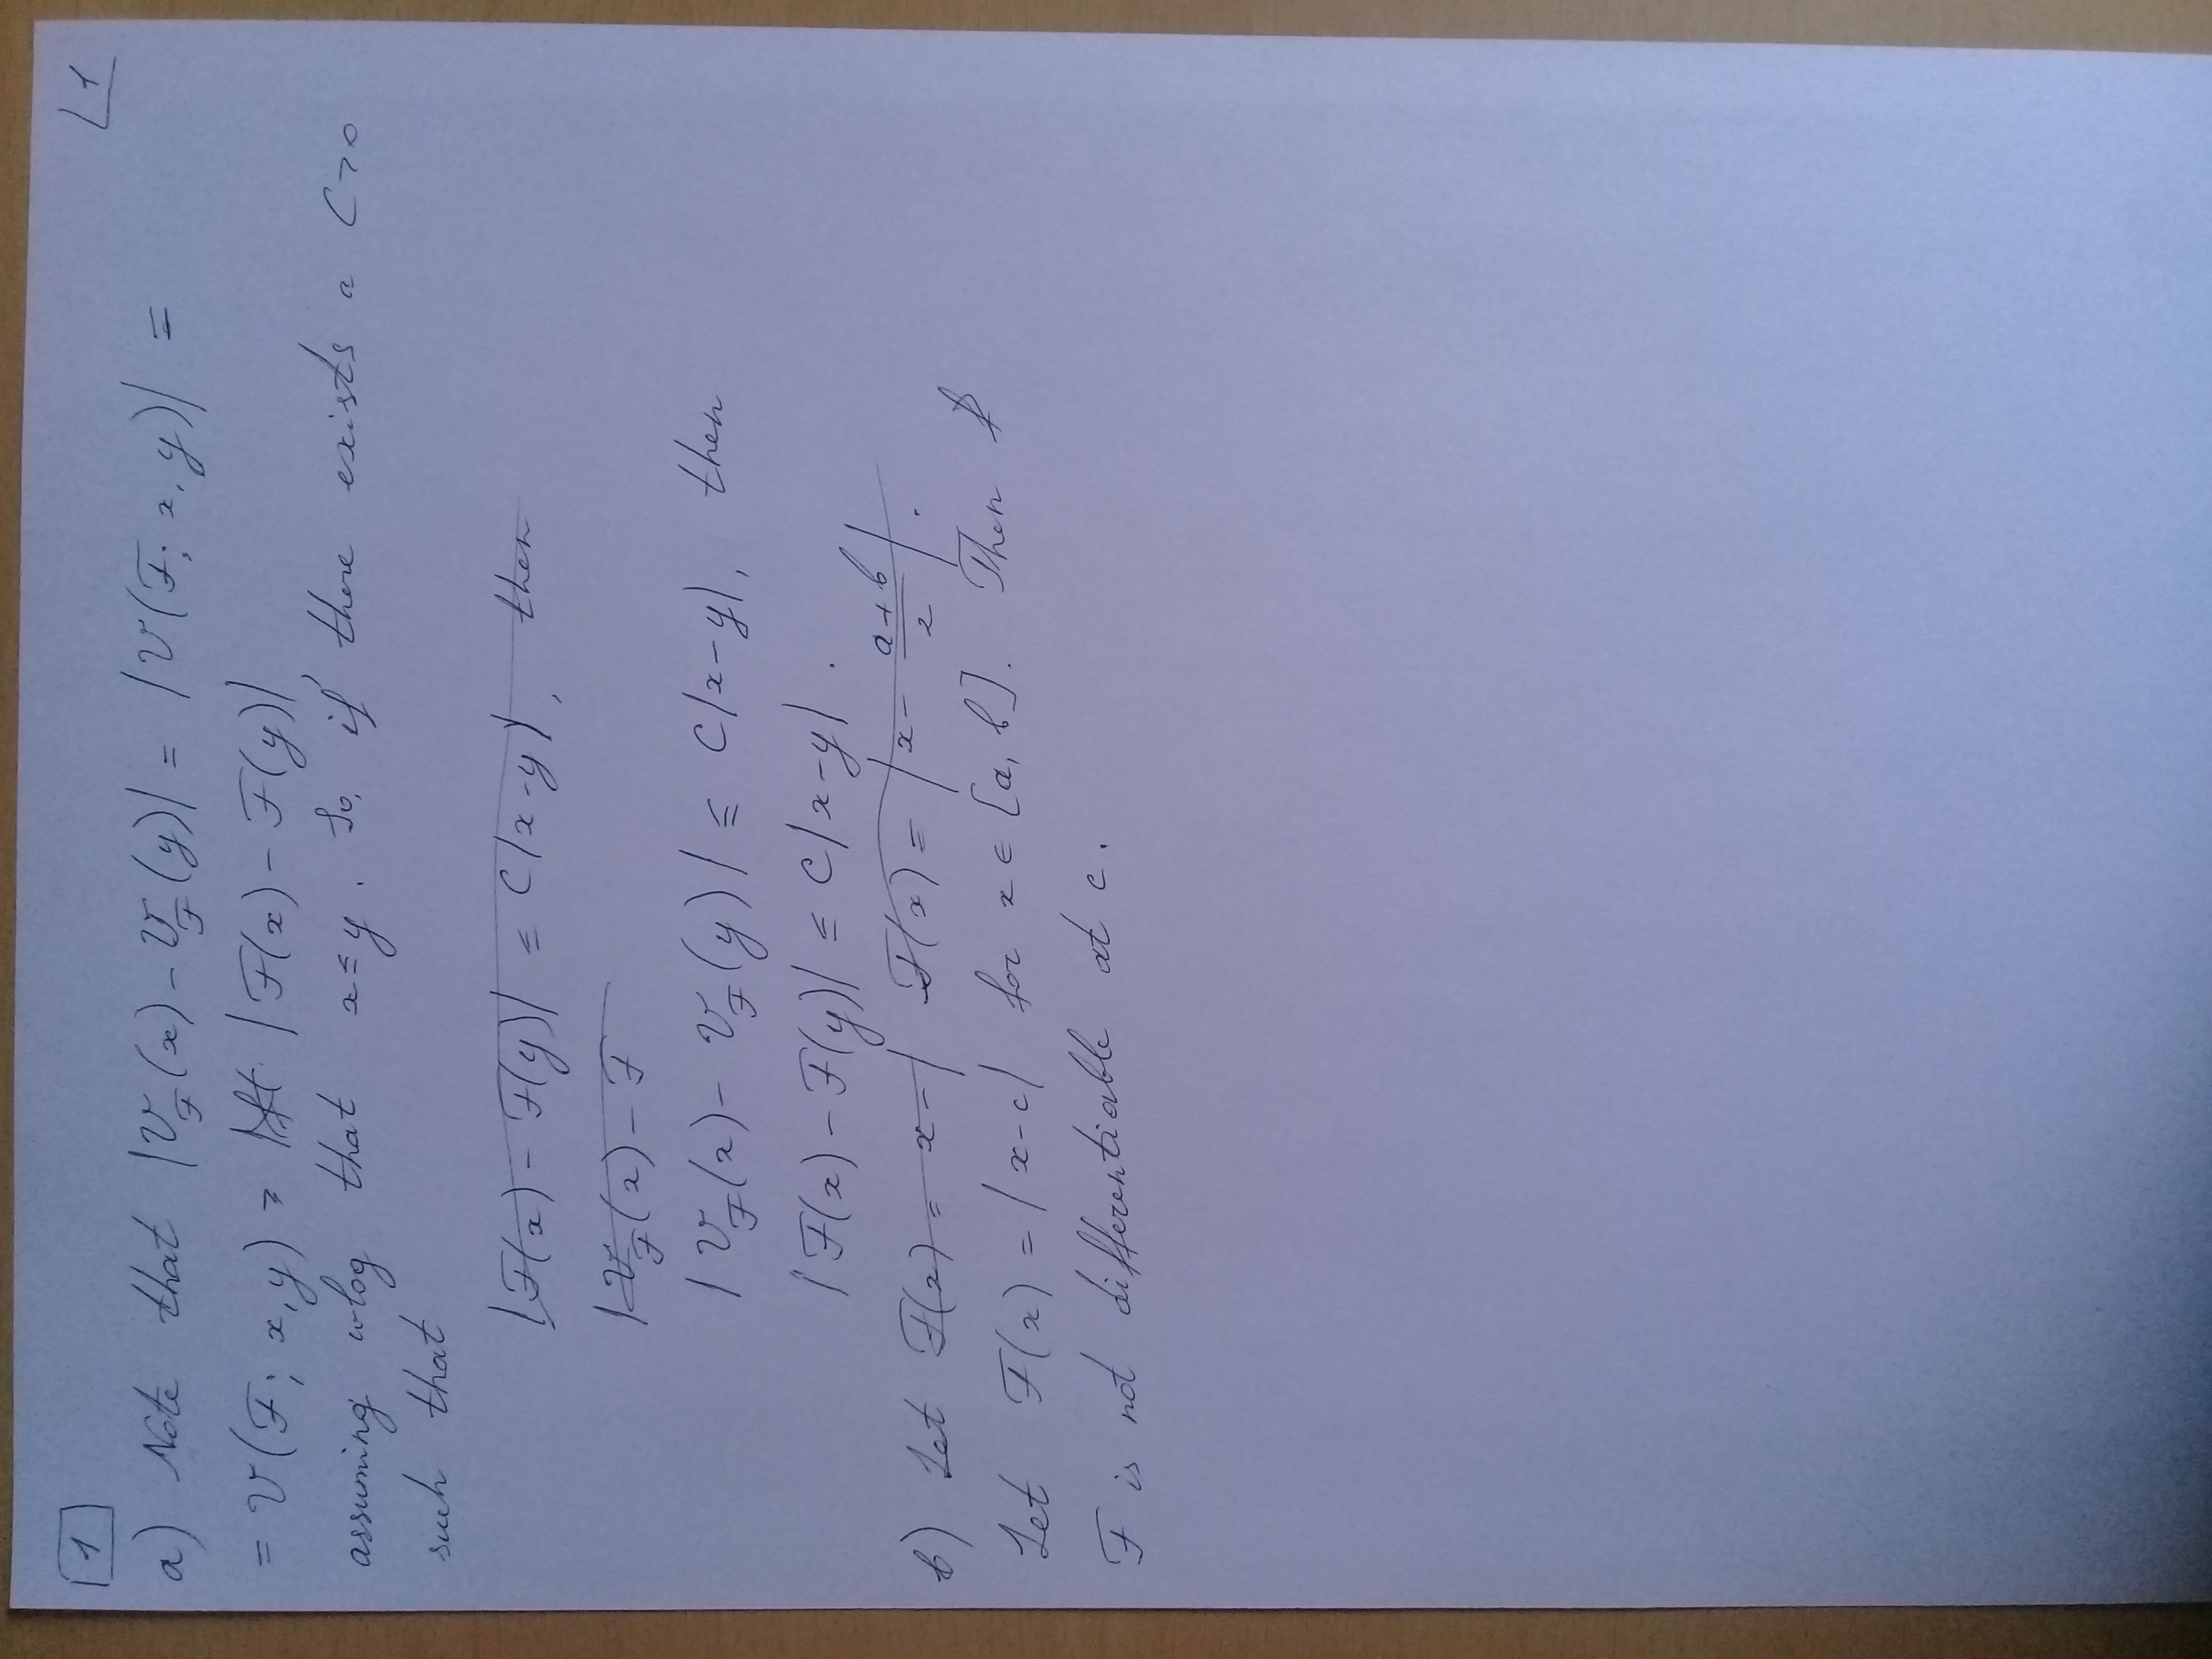 1 1
a) Note that |V_F(x) - V_F(y)| = |V(F; x, y)| =
= V(F; x, y) ≥ |F(x) - F(y)|,
assuming wlog that x ≤ y. So, if there exists a C>0
such that
|F(x) - F(y)| ≤ C|x-y|, then
|V_F(x) - F
|V_F(x) - V_F(y)| ≤ C|x-y|, then
|F(x) - F(y)| ≤ C|x-y|.
b) Let F(x) = x - | F(x) = |x - \frac{a+b}{2}|.
Let F(x) = |x-c| for x ∈ [a, b]. Then
F is not differentiable at c.